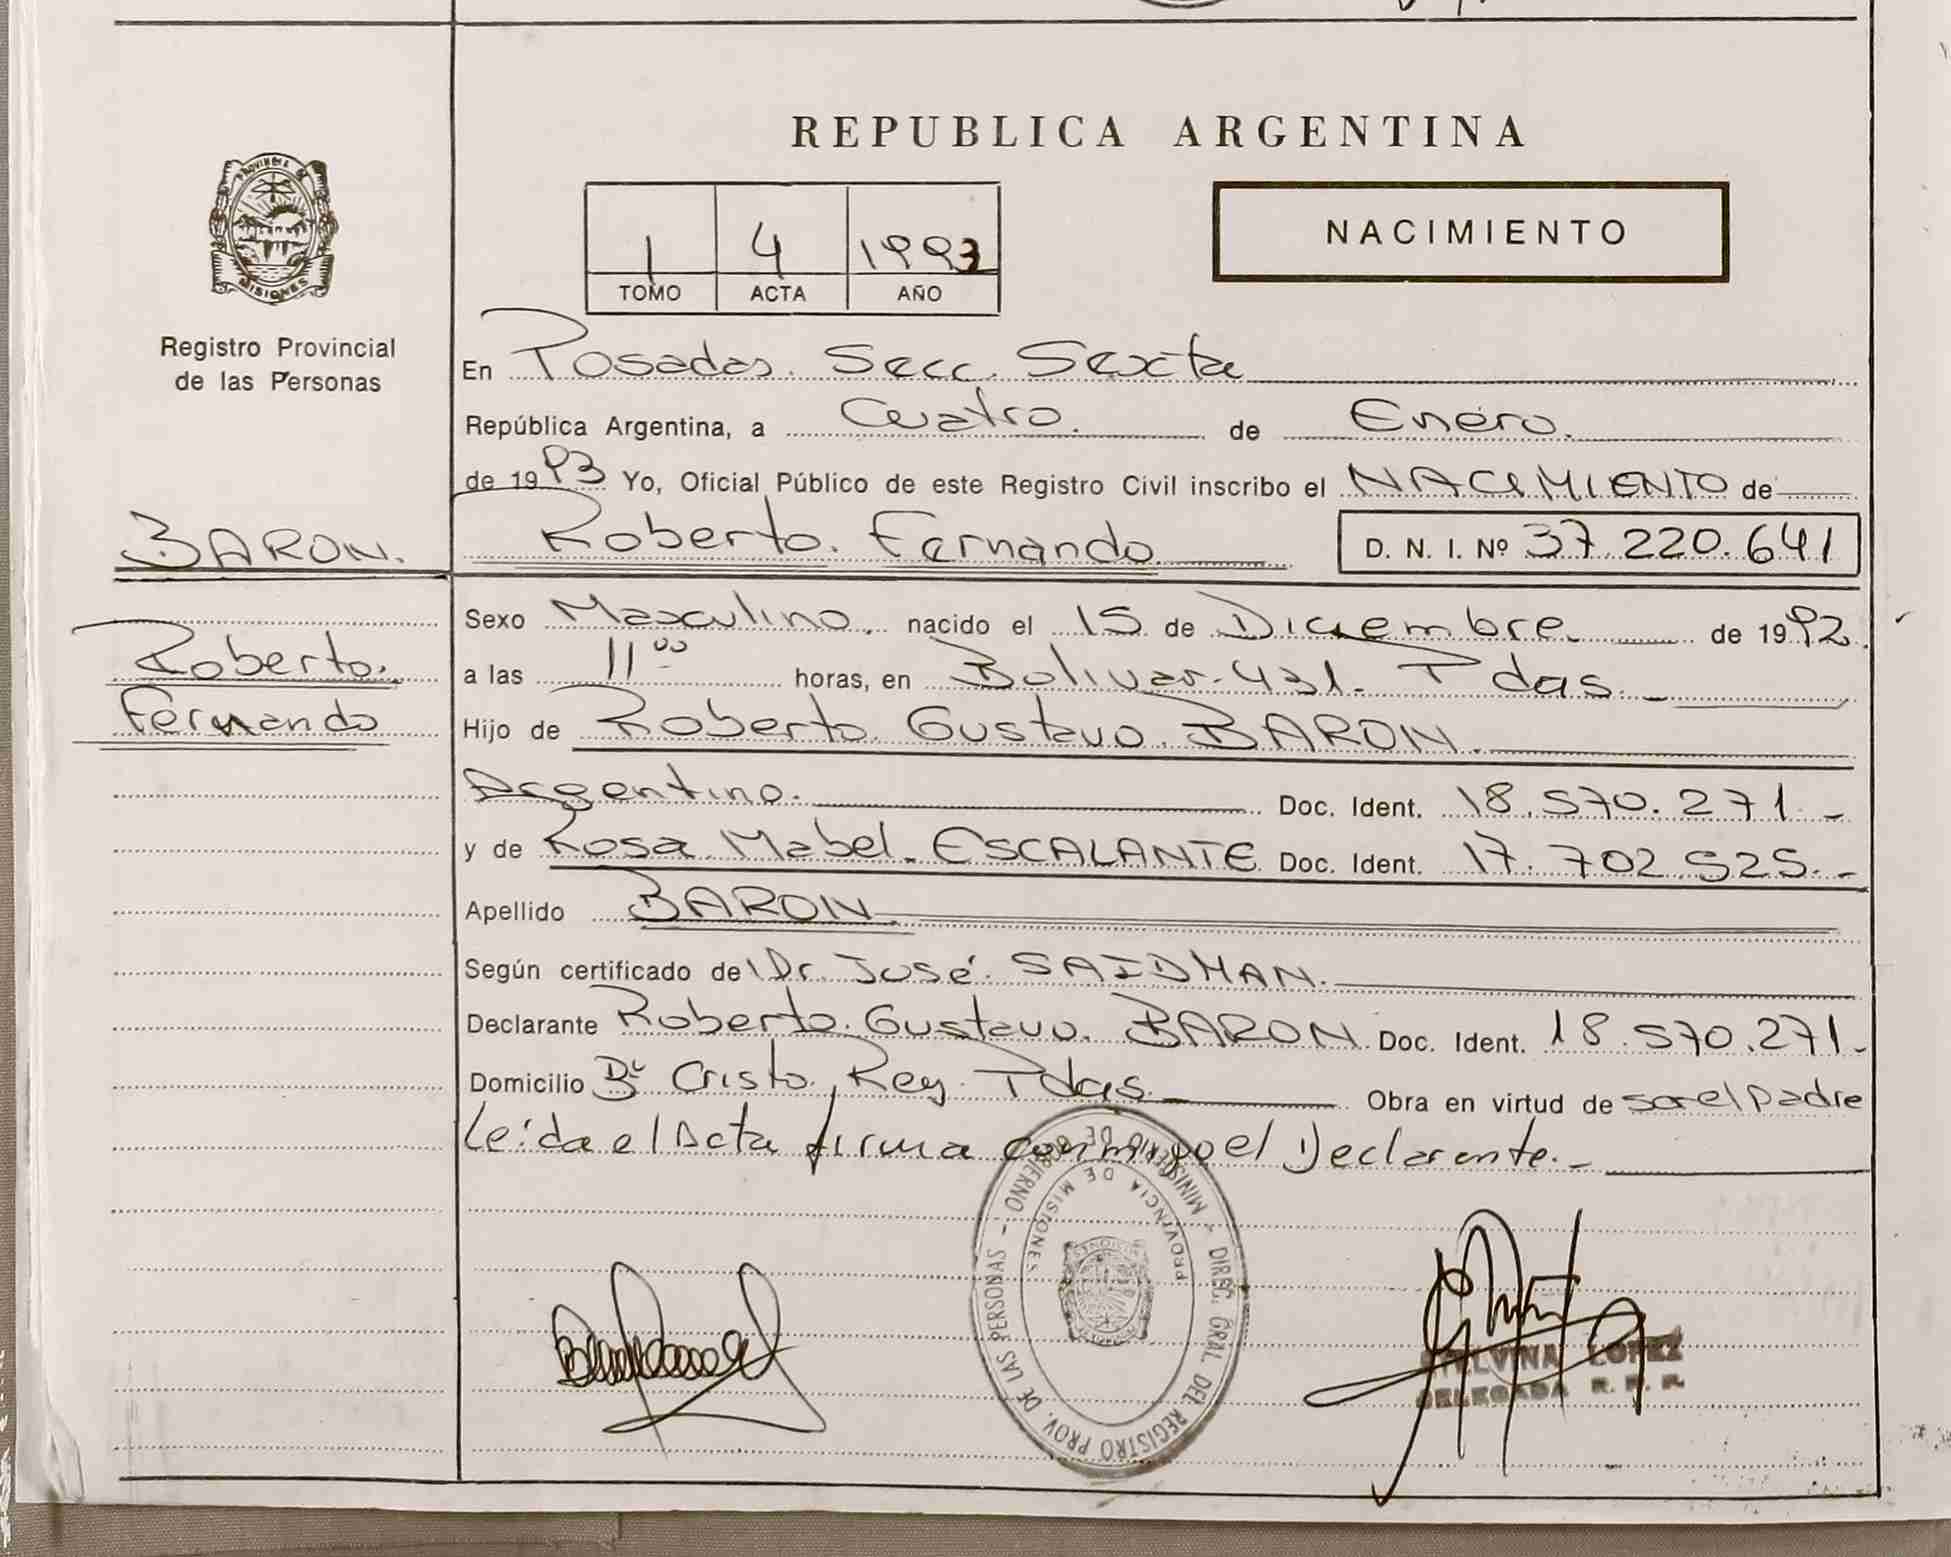 REPUBLICA ARGENTINA
PROVINCIA DE
MISIONES
Registro Provincial
de las Personas
1 4 1993
TOMO ACTA AÑO
NACIMIENTO
En Posadas. Secc. Sexta
República Argentina, a Cuatro. de Enero.
de 1993 Yo, Oficial Público de este Registro Civil inscribo el NACIMIENTO de
BARON.
Roberto. Fernando. D. N. I. Nº 37.220.641
Roberto.
Fernando
Sexo Masculino, nacido el 15 de Diciembre de 1992.
a las 11⁰⁰ horas, en Bolivar. 431. Pdas.
Hijo de Roberto Gustavo. BARON.
Argentino. Doc. Ident. 18.570.271.-
y de Rosa Mabel. ESCALANTE Doc. Ident. 17.702.525.-
Apellido BARON.
Según certificado del Dr. José. SAIDMAN.
Declarante Roberto. Gustavo. BARON. Doc. Ident. 18.570.271.-
Domicilio Bº Cristo Rey. Pdas. Obra en virtud de ser el padre
Leída el Acta firma conmigo el Declarante.-
MINISTERIO DE GOBIERNO - DIREC. GRAL. DEL REGISTRO PROV. DE LAS PERSONAS -
PROVINCIA DE MISIONES
LOPEZ
DELEGADA R. P. P.